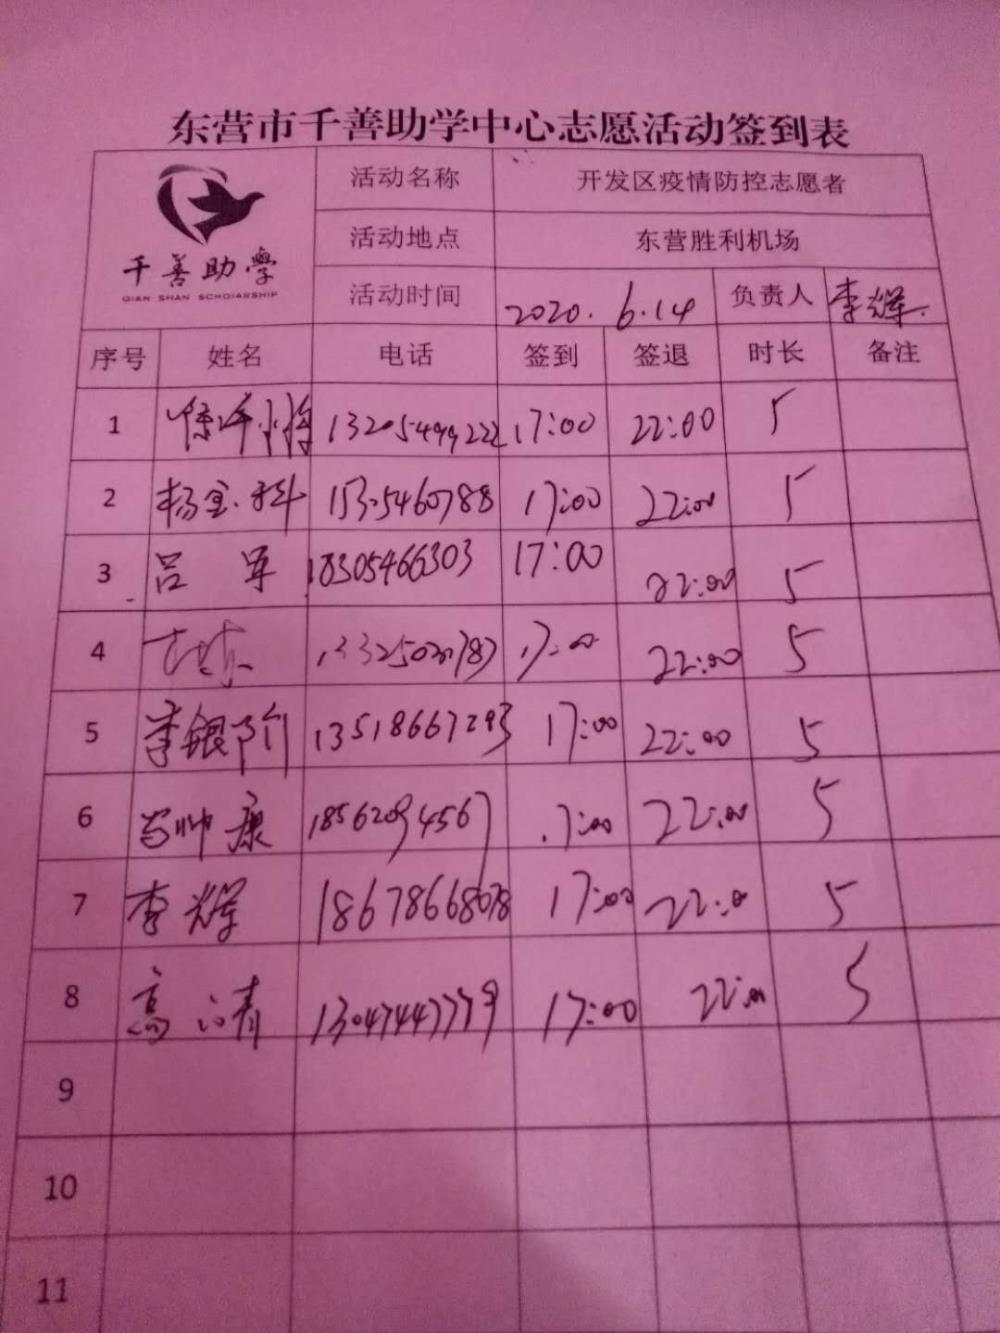 东营市千善助学中心志愿活动签到表
千善助学
QIAN SHAN SCHOIARSHIP
活动名称 开发区疫情防控志愿者
活动地点 东营胜利机场
活动时间 2020.6.14 负责人 李辉
序号 姓名 电话 签到 签退 时长 备注
1 13205499222 17:00 22:00 5
2 杨金科 15305460788 17:00 22:00 5
3 吕军 18305466303 17:00 22:00 5
4 17:00 22:00 5
5 李银阶 13518667293 17:00 22:00 5
6 帅康 18562094567 17:00 22:00 5
7 李辉 18678668678 17:00 22:00 5
8 高清 13047447779 17:00 22:00 5
9
10
11